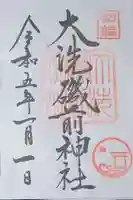 大洗磯前神社
令和五年一月一日